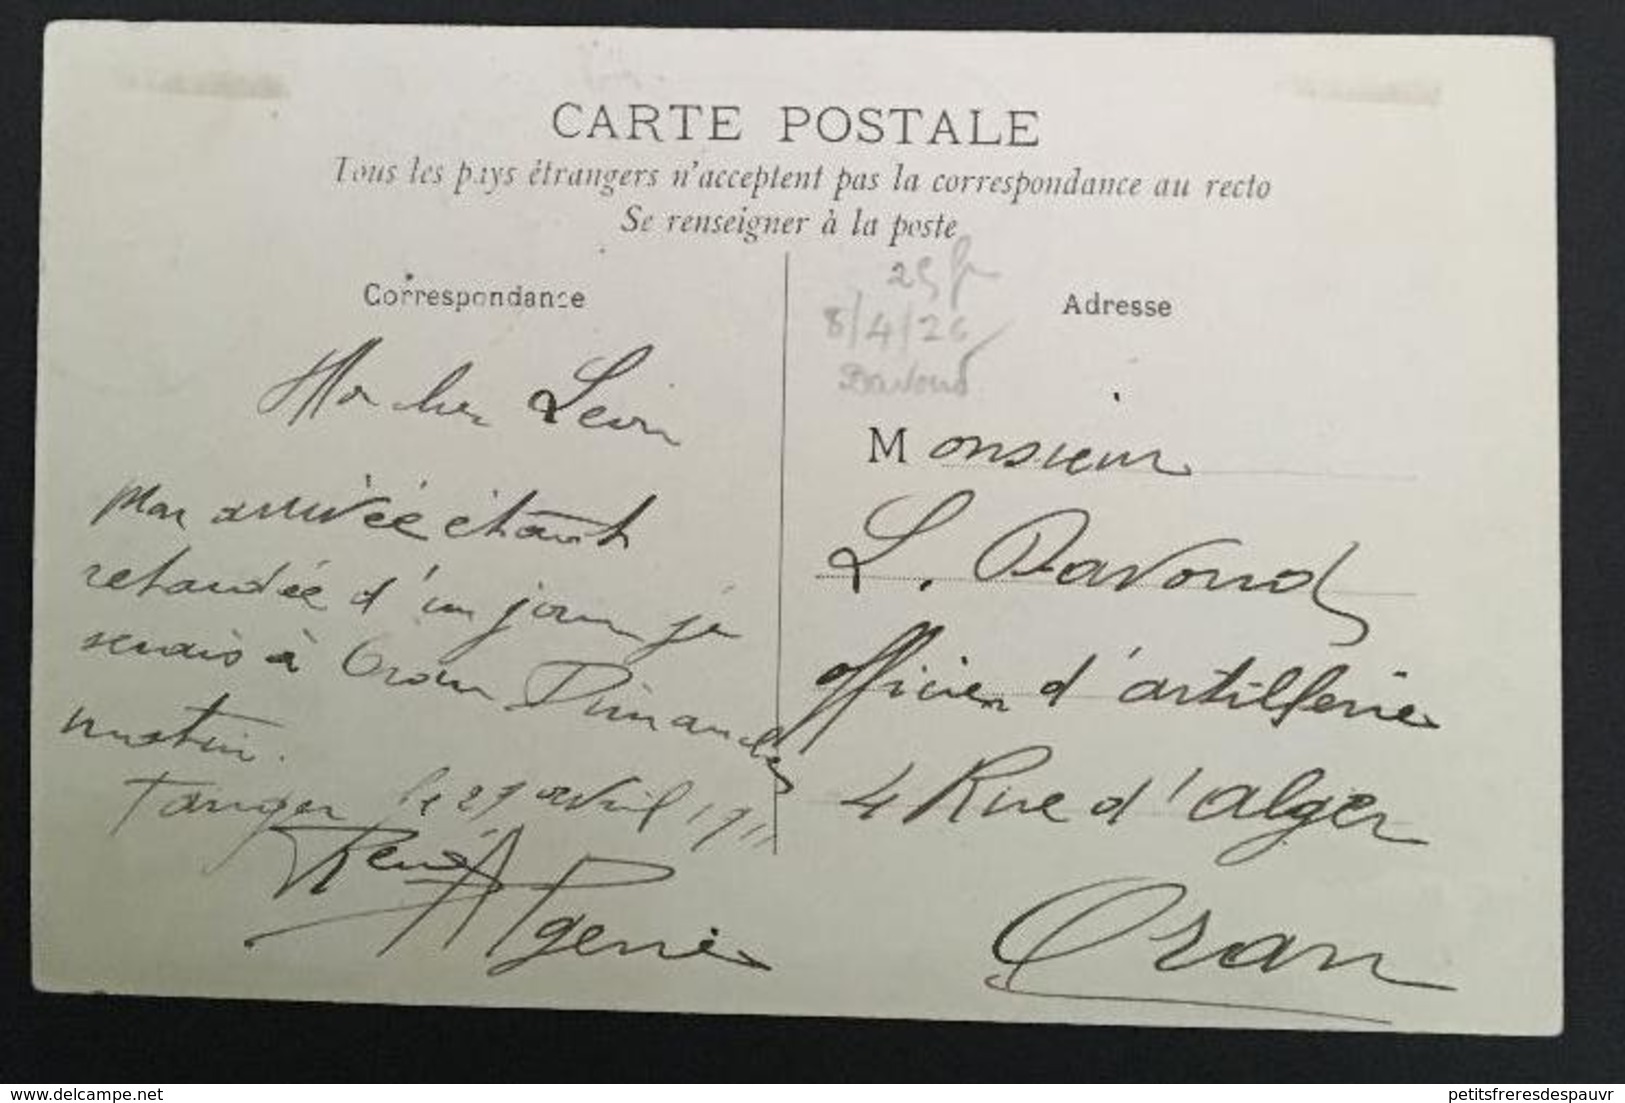 CARTE POSTALE
Tous les pays étrangers n'acceptent pas la correspondance au recto
Se renseigner à la poste
Correspondance
Mon cher
mon arrivée étant
retardée d'un jour je
serais à Oran Dimanche
matin.
Tanger le 29 avril 1911
René
25 fr
8/4/26
Davoud
Adresse
Monsieur
L. Davoud
officier d'artillerie
4 Rue d'alger
Oran
delcampe.net
petitsfreresdespauvr